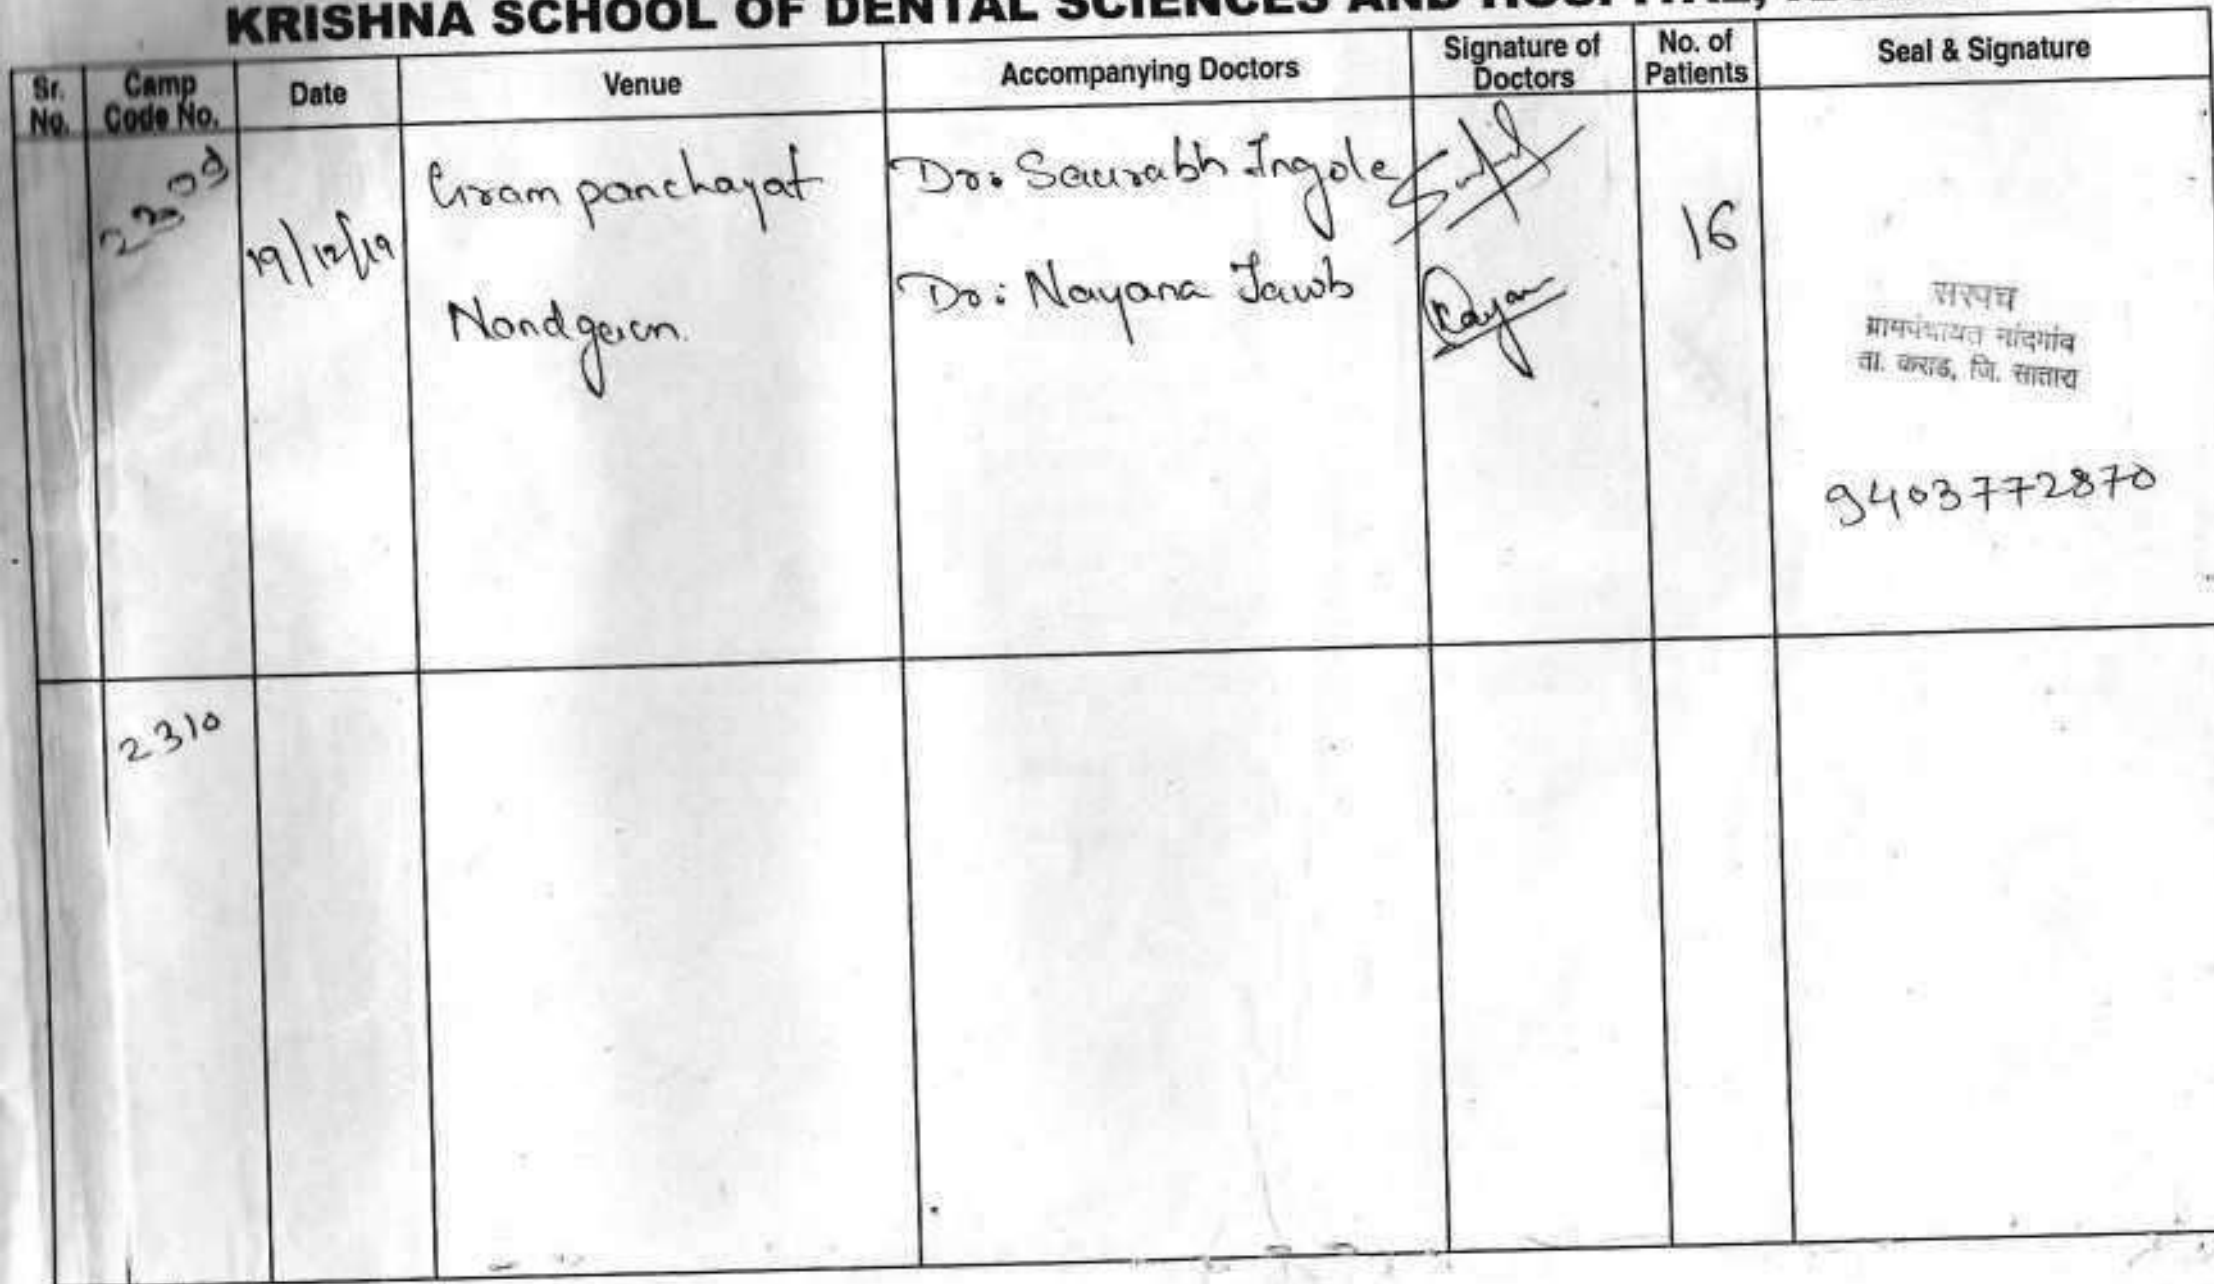 KRISHNA SCHOOL OF DENTAL SCIENCES AND HOSPITAL,
Sr. No.
Camp Code No.
Date
Venue
Accompanying Doctors
Signature of Doctors
No. of Patients
Seal & Signature
19/12/19
Gram panchayat
Nandgaon.
Dr. Saurabh Ingole
Dr. Nayana
16
सरपंच
ग्रामपंचायत नांदगांव
ता. कराड, जि. सातारा
9403772870
2310